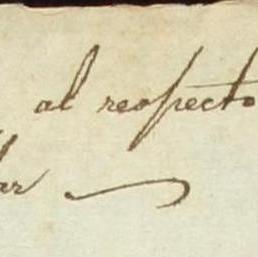 al respecto